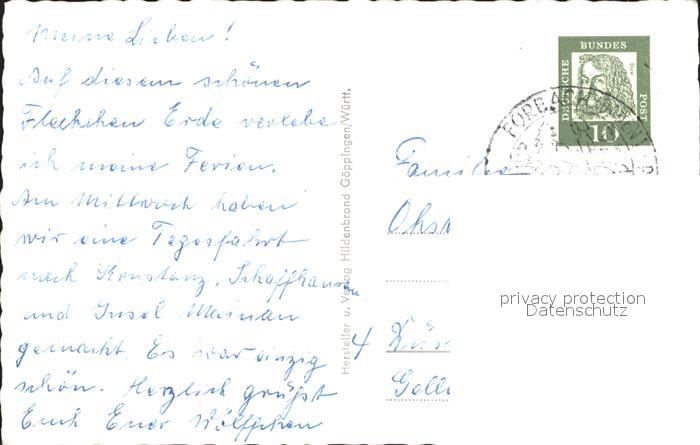 Meine Lieben!
Auf diesem schönen
Fleckchen Erde verlebe
ich meine Ferien.
Am Mittwoch haben
wir eine Tagesfahrt
nach Konstanz, Schaffhausen
und Insel Mainau
gemacht. Es war einzig
schön. Herzlich grüßt
Euch Euer Wölfchen
Hersteller u. Verlag Hildenbrand Göppingen/Württ.
DEUTSCHE BUNDES POST
10
FORBACH
Familie
4
privacy protection
Datenschutz